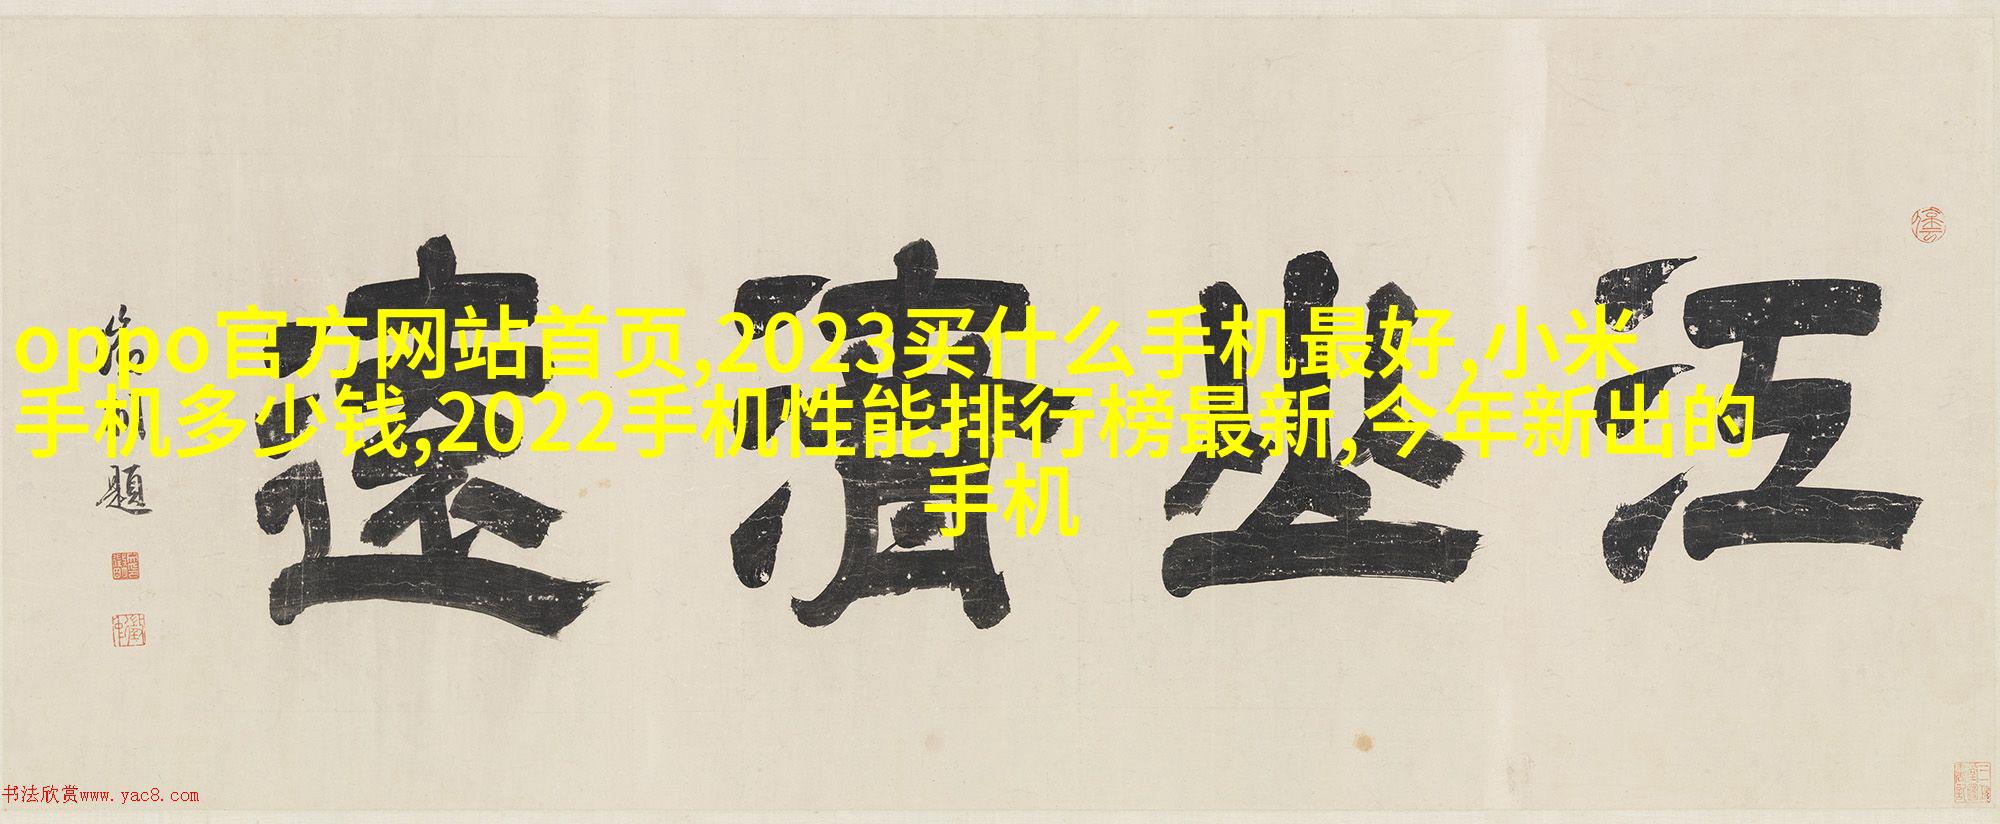 oppo官方网站首页,2023买什么手机最好,小米
手机多少钱,2022手机性能排行榜最新,今年新出的
手机
江山清遠
徵明題
书法欣赏www.yac8.com